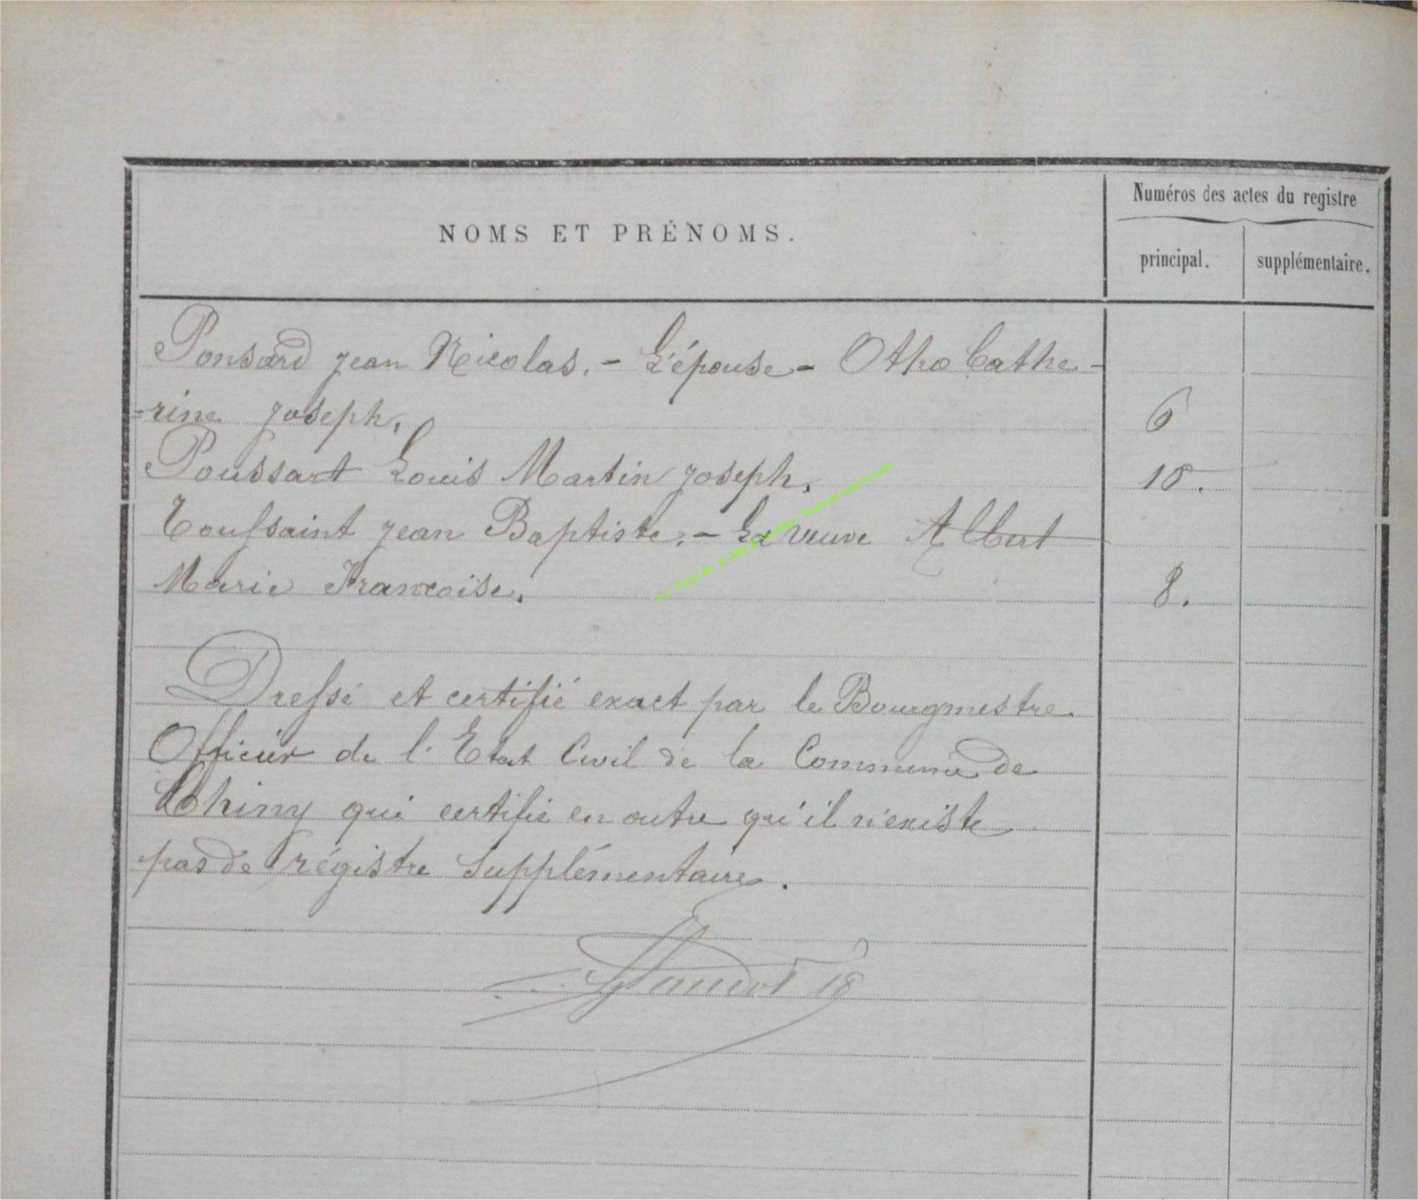 Numéros des actes du registre
NOMS ET PRÉNOMS.
principal. supplémentaire.
Ponsard Jean Nicolas. - L'épouse - Otho Cathe-
=rine Joseph. 6
Poussart Louis Martin Joseph. 10.
Toussaint Jean Baptiste. - La veuve Albert
Marie Francoise. 8.
Dressé et certifié exact par le Bourgmestre
Officier de l'Etat Civil de la Commune de
Chiny qui certifie en outre qu'il n'existe
pas de régistre supplémentaire.